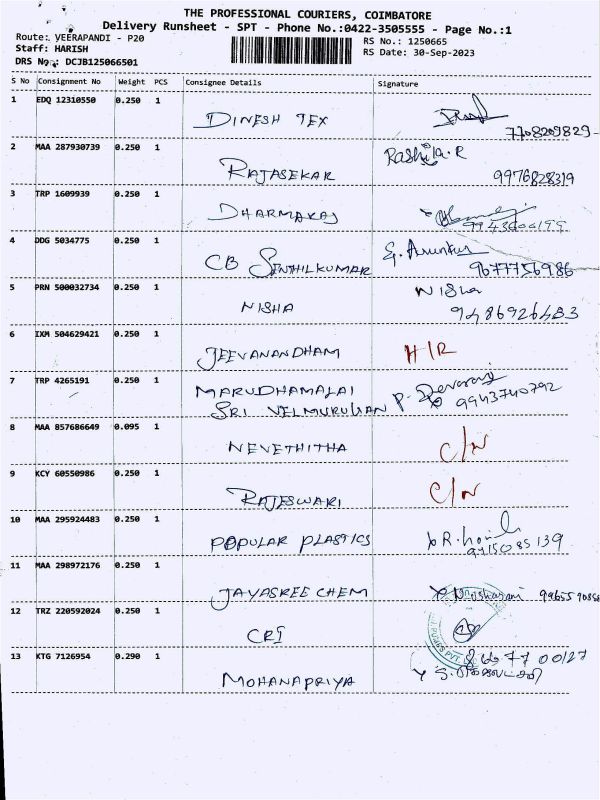 THE PROFESSIONAL COURIERS, COIMBATORE
Delivery Runsheet - SPT - Phone No.:0422-3505555 - Page No.:1
Route: VEERAPANDI - P20
RS No.: 1250665
Staff: HARISH
RS Date: 30-Sep-2023
DRS No.: DCJB125066501
S No Consignment No Weight PCS Consignee Details Signature
1 EDQ 12310550 0.250 1 DINESH TEX
7708209829-
2 MAA 287930739 0.250 1 RAJASEKAR Rashila.R
9976828319
3 TRP 1609939 0.250 1 DHARMARAJ
4 DDG 5034775 0.250 1 CB SENTHILKUMAR
9677756986
5 PRN 500032734 0.250 1 NISHA Nisha
9486926483
6 IXM 504629421 0.250 1 JEEVANANDHAM H/R
7 TRP 4265191 0.250 1 MARUDHAMALAI
SRI VELMURUGAN P. Devaraj
9943740792
8 MAA 857686649 0.095 1 NEVETHITHA C/N
9 KCY 60550986 0.250 1 RAJESWARI C/N
10 MAA 295924483 0.250 1 POPULAR PLASTICS
9715085139
11 MAA 298972176 0.250 1 JAYASREE CHEM
12 TRZ 220592024 0.250 1 CRI
13 KTG 7126954 0.290 1 MOHANAPRIYA